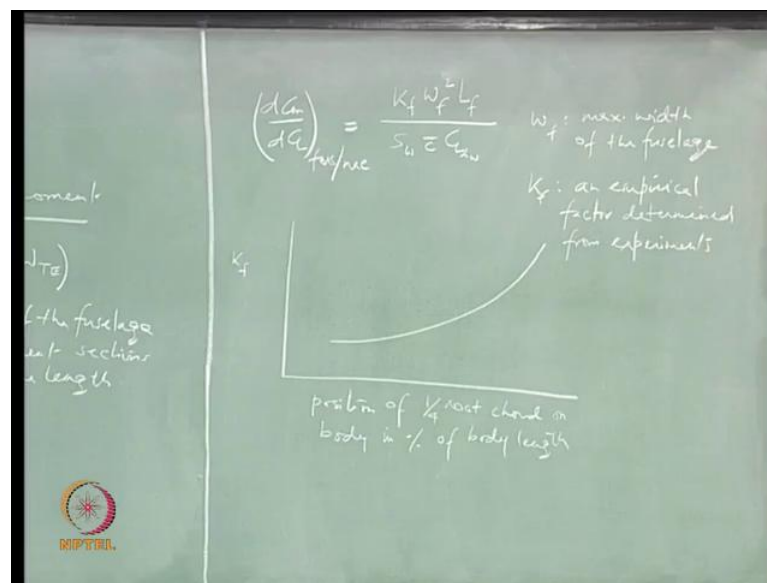 oment
TE)
f the fuselage
ent sections
length
(dCm/dCL)fus/nac = Kf Wf² Lf / Sw c̄ CLαw
Wf : max. width
of the fuselage
Kf : an empirical
factor determined
from experiments
Kf
position of 1/4 root chord on
body in % of body length
NPTEL